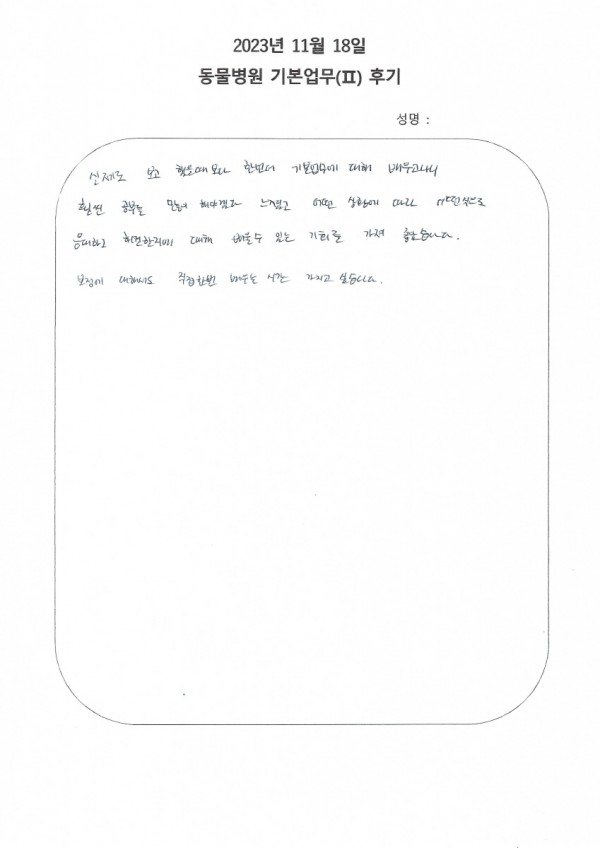 2023년 11월 18일
동물병원 기본업무(Ⅱ) 후기
성명 :
실제로 보고 했을때보다 한번더 기본업무에 대해 배우고나니
훨씬 공부를 많이 해야겠다 느꼈고 어떤 상황에 따라 어떤식으로
응대하고 해야 대해 배울수 있는 기회를 가져 좋았습니다.
보정에 대해서도 직접한번 배우는 시간 가지고 싶습니다.